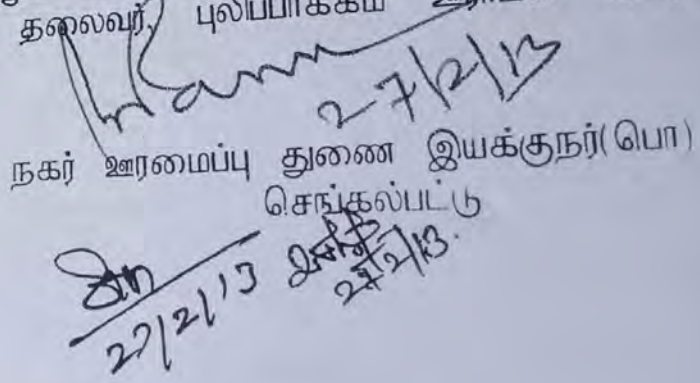 தலைவர், புலிப்பாக்கம்
27/2/13
நகர் ஊரமைப்பு துணை இயக்குநர்(பொ)
செங்கல்பட்டு
27/2/13
27/2/13.